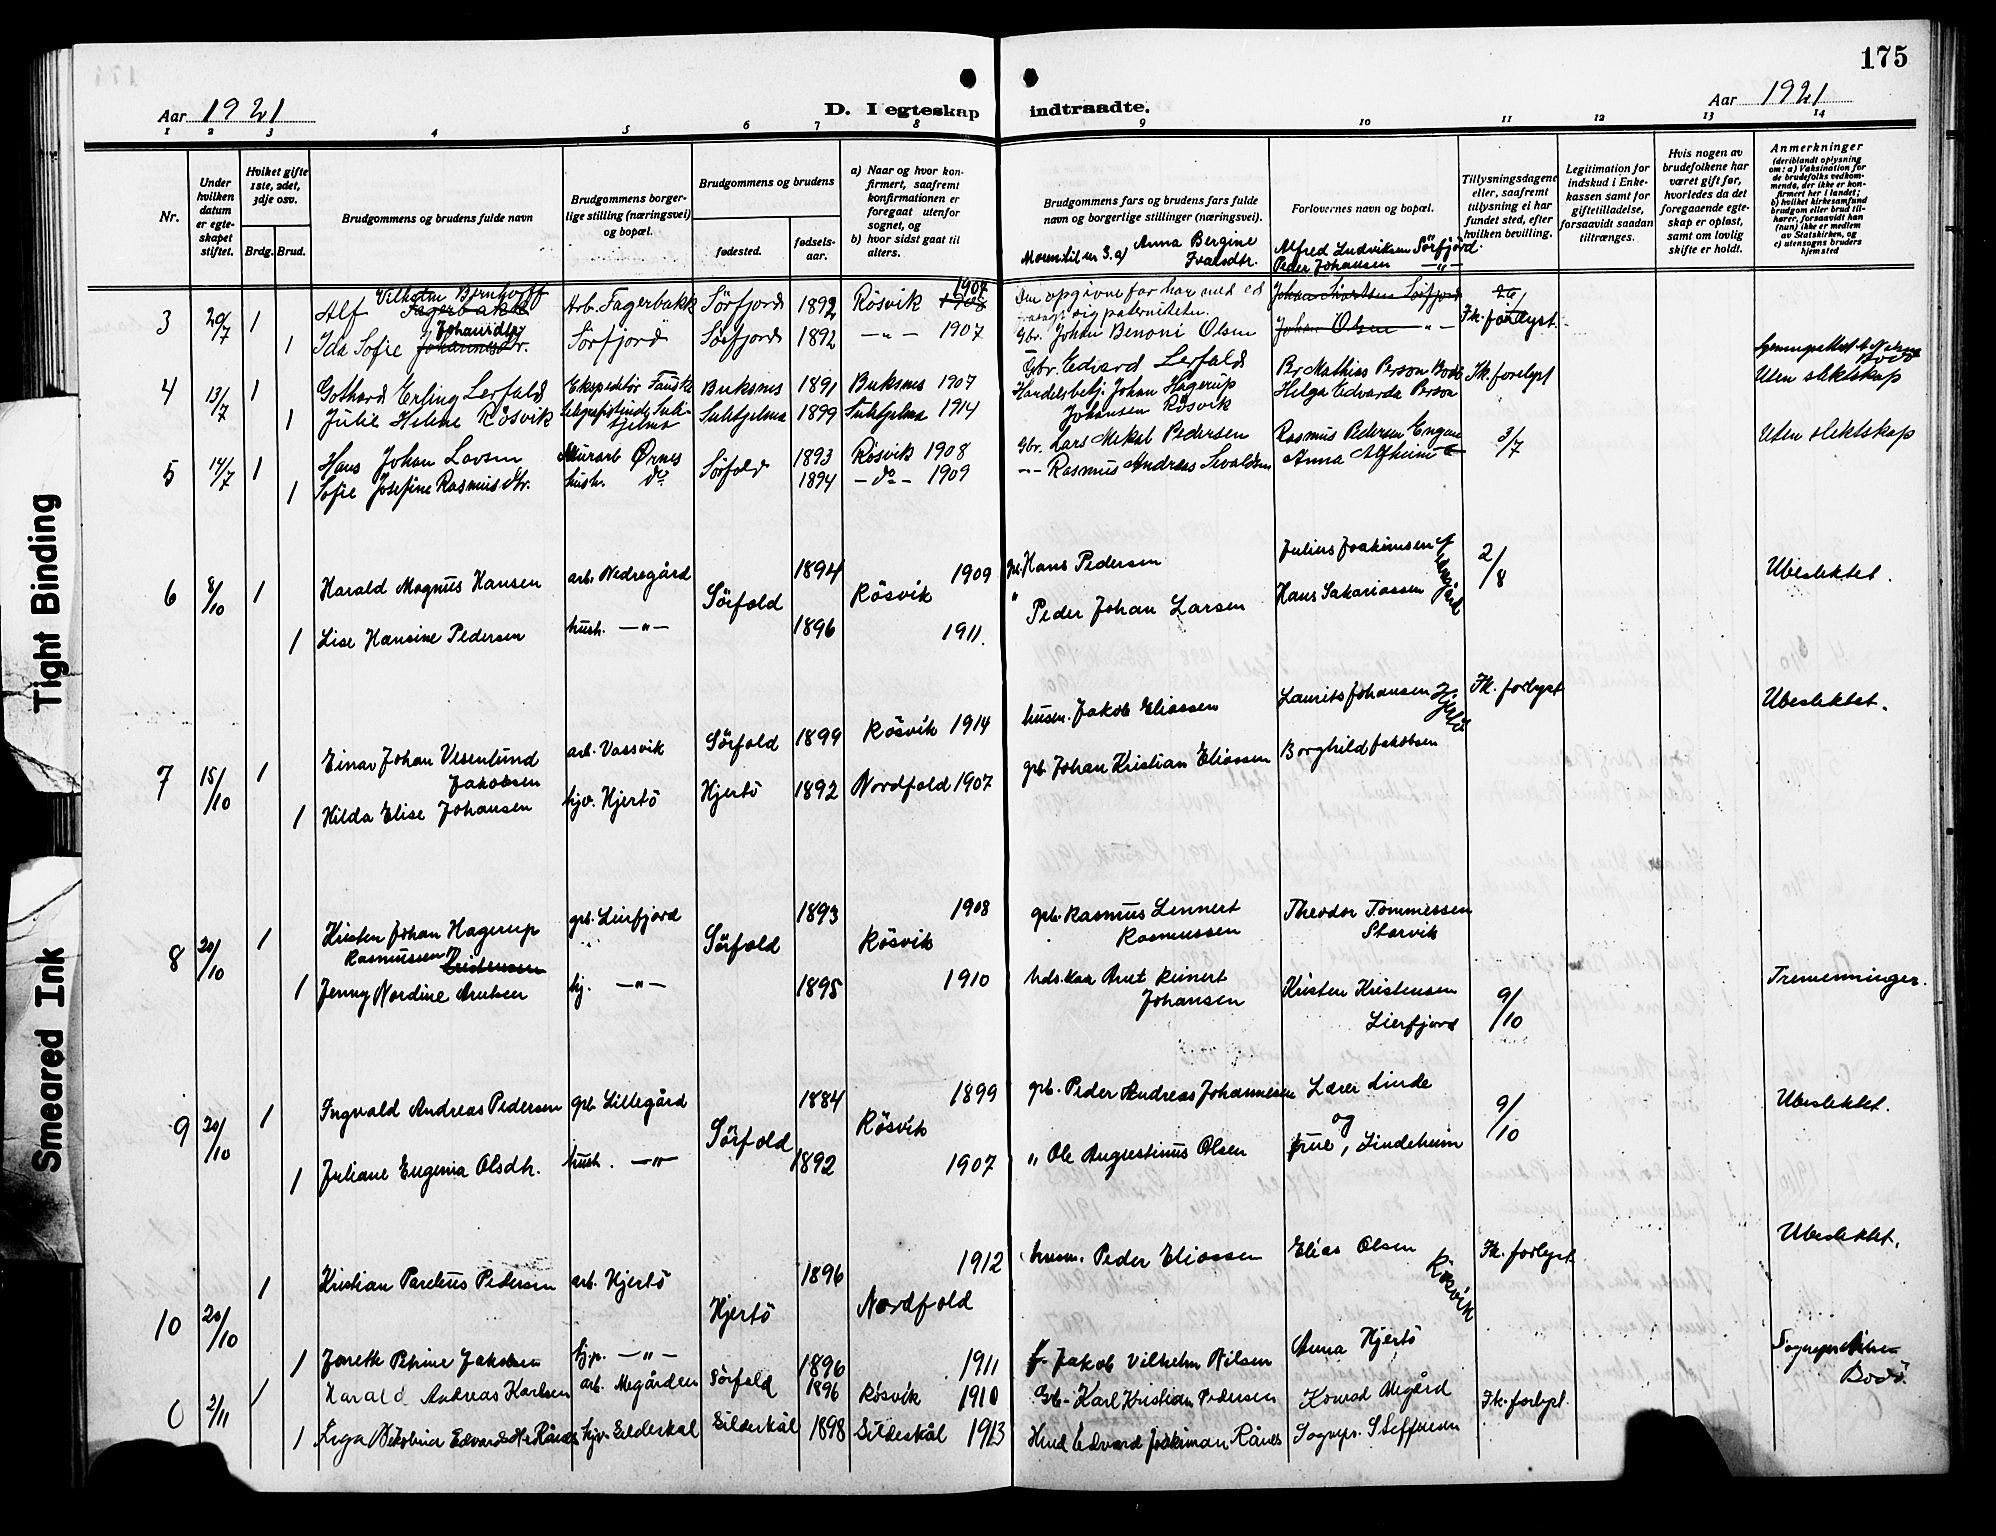 175
Aar 1921
D. I egteskap indtraadte.
Aar 1921
1 2 3 4 5 6 7 8 9 10 11 12 13 14
Nr.
Under hvilken datum er egteskapet stiftet.
Hvilket gifte 1ste, 2det, 3dje osv.
Brdg. Brud.
Brudgommens og brudens fulde navn
Brudgommens borgerlige stilling (næringsvei) og bopæl.
Brudgommens og brudens
fødested.
fødselsaar.
a) Naar og hvor konfirmert, saafremt konfirmationen er foregaat utenfor sognet, og
b) hvor sidst gaat til alters.
Brudgommens fars og brudens fars fulde navn og borgerlige stillinger (næringsvei).
Forlovernes navn og bopæl.
Tillysningsdagene eller, saafremt tillysning ei har fundet sted, efter hvilken bevilling.
Legitimation for indskud i Enkekassen samt for giftetilladelse, forsaavidt saadan tiltrænges.
Hvis nogen av brudefolkene har været gift før, hvorledes da det foregaaende egteskap er opløst, samt om lovlig skifte er holdt.
Anmerkninger
(deriblandt oplysning om: a) Vaksination for de brudefolks vedkommende, der ikke er konfirmert her i landet; b) hvilket kirkesamfund brudgom eller brud tilhører, forsaavidt han (hun) ikke er medlem av Statskirken, og c) utensogns bruders hjemsted
Anna Bergine
Alfred Ludviksen Sörfjord.
Peder Johansen —"—
3 20/7 1 Alf Vilhelm Bernhoff Fagerbakke Arb. Fagerbakk Sörfjord 1892 Rösvik 1907 1908
Den opgivne far har med ed
fralagt sig paterniteten. Fk. forlyst.
1 Ida Sofie Johansdtr Johannesdtr. Sörfjord Sörfjord 1892 —"— 1907 Gbr. Johan Benoni Olsen Johan Olsen —"—
4 13/7 1 Gothard Erling Lerfald Ekspeditör Fauske Buksnes 1891 Buksnes 1907 Gbr. Edvard Lerfald Per Mathias Person Bodö Fk. forlyst Uten slektskap
1 Julie Helene Rösvik Sulitjelma Sulitjelma 1899 Sulitjelma 1914 Handelsbetj. Johan Hagerup Johansen Rösvik Helga Edvarda Person
5 14/7 1 Hans Johan Larsen Murarb Ørnes Sörfold 1893 Rösvik 1908 Gbr. Lars Mikal Pedersen Rasmus Pedersen Engan 3/7 Uten slektskap
1 Sofie Josefine Rasmusdtr. hush. do 1894 —do— 1909 —"— Rasmus Andreas Sivaldsen Anna Alfheim
6 8/10 1 Harald Magnus Hansen arb. Nedregård Sörfold 1894 Rösvik 1909 gbr. Hans Pedersen Julius Joakimsen 2/8 Ubeslektet.
1 Lise Hansine Pedersen hush. —"— 1896 1911. " Peder Johan Larsen Hans Sakariassen
7 15/10 1 Einar Johan Vesenlund Jakobsen arb. Vassvik Sörfold 1899 Rösvik 1914 husm. Jakob Eliassen Laurits Johansen Hjertö Fk. forlyst Ubeslektet.
1 Hilda Elise Johansen hjv. Hjertö Hjertö 1892 Nordfold 1907 gb. Johan Kristian Eliassen Borghild Jakobsen
8 20/10 1 Kristen Johan Hagerup Rasmussen Kristensen gb. Lierfjord Sörfold 1893 Rösvik 1908 gb. Rasmus Lennert Rasmussen Theodor Tommessen Storvik
1 Jenny Nordine Arntsen hj. —"— 1895 1910 Arnt Reinert Johansen Kristen Kristensen Lierfjord 9/10 Tremenninger.
9 20/10 1 Ingvald Andreas Pedersen gb. Lillegård Sörfold 1884 Rösvik 1899 gb. Peder Andreas Johannesen Lærer Linde og 9/10 Ubeslektet.
1 Juliane Eugenia Olsdtr. hush. —"— 1892 1907 " Ole Augustinus Olsen frue, Lindeheim
10 20/10 1 Kristian Parelius Pedersen arb. Hjertö Hjertö 1896 Nordfold 1912 husm. Peder Eliassen Elias Olsen Rösvik Fk. forlyst Ubeslektet.
1 Jorette Petrine Jakobsen hjv. —"— 1896 1911 f. Jakob Vilhelm Nilsen Anna Hjertö
2/11 1 Harald Andreas Karlsen arb. Megården Sörfold 1896 Rösvik 1910 Gb. Karl Kristian Pedersen Konrad Megård Fk. forlyst. Bodö.
1 Edvarda Rånes hjv. Gildeskal Gildeskål 1898 Gildeskål 1913 Edvard Joakiman Rånes Sognepr. Steffensen
Tight Binding
Smeared Ink